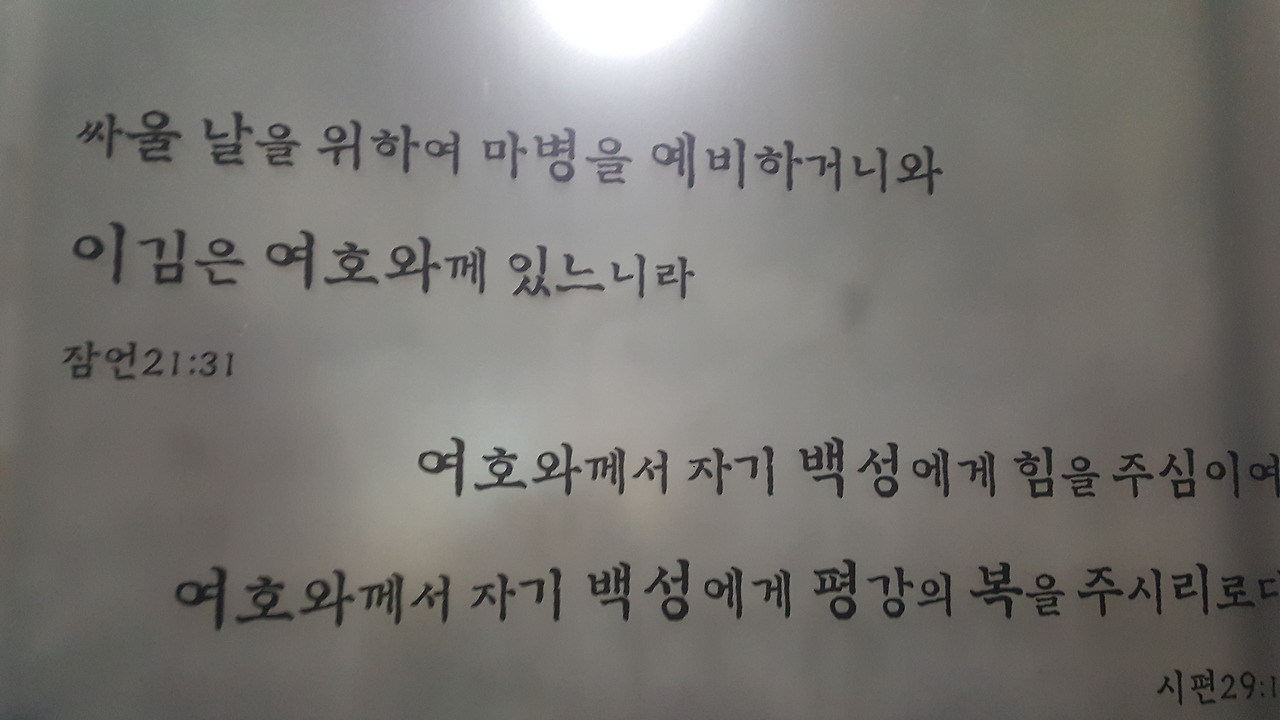 싸울 날을 위하여 마병을 예비하거니와
이김은 여호와께 있느니라
잠언21:31
여호와께서 자기 백성에게 힘을 주심이여
여호와께서 자기 백성에게 평강의 복을 주시리로다
시편29:1